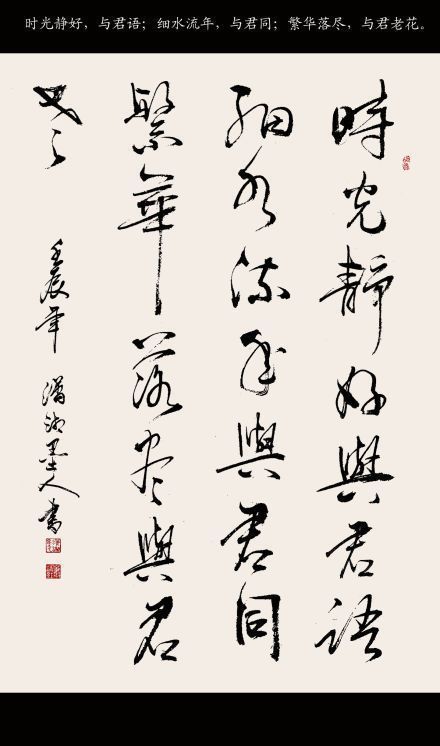 时光静好，与君语；细水流年，与君同；繁华落尽，与君老花。
時光靜好與君語
細水流年與君同
繁華落尽與君
老
壬辰年
瀟湘墨人書